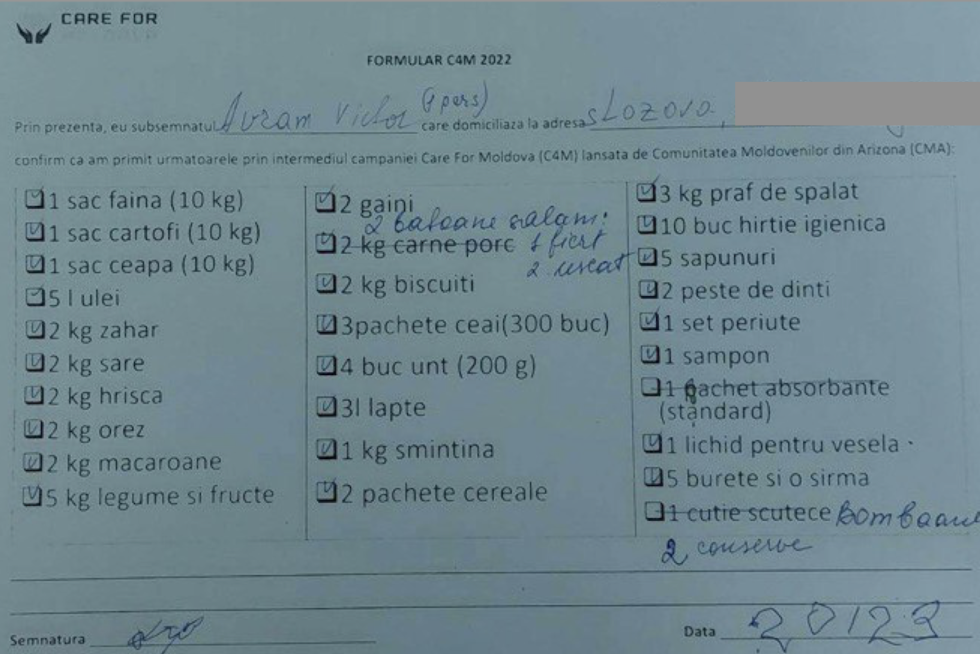 CARE FOR
FORMULAR C4M 2022
Prin prezenta, eu subsemnatul Avram Victor (1 pers) care domiciliaza la adresa s Lozova,
confirm ca am primit urmatoarele prin intermediul campaniei Care For Moldova (C4M) lansata de Comunitatea Moldovenilor din Arizona (CMA):
1 sac faina (10 kg)
1 sac cartofi (10 kg)
1 sac ceapa (10 kg)
5 l ulei
2 kg zahar
2 kg sare
2 kg hrisca
2 kg orez
2 kg macaroane
5 kg legume si fructe
2 gaini
2 batoane salam:
2 kg carne porc 1 fiert
2 uscat
2 kg biscuiti
3pachete ceai(300 buc)
4 buc unt (200 g)
3l lapte
1 kg smintina
2 pachete cereale
3 kg praf de spalat
10 buc hirtie igienica
5 sapunuri
2 peste de dinti
1 set periute
1 sampon
1 pachet absorbante
(standard)
1 lichid pentru vesela
5 burete si o sirma
1 cutie scutece bomboane
2 conserve
Semnatura
Data 20123